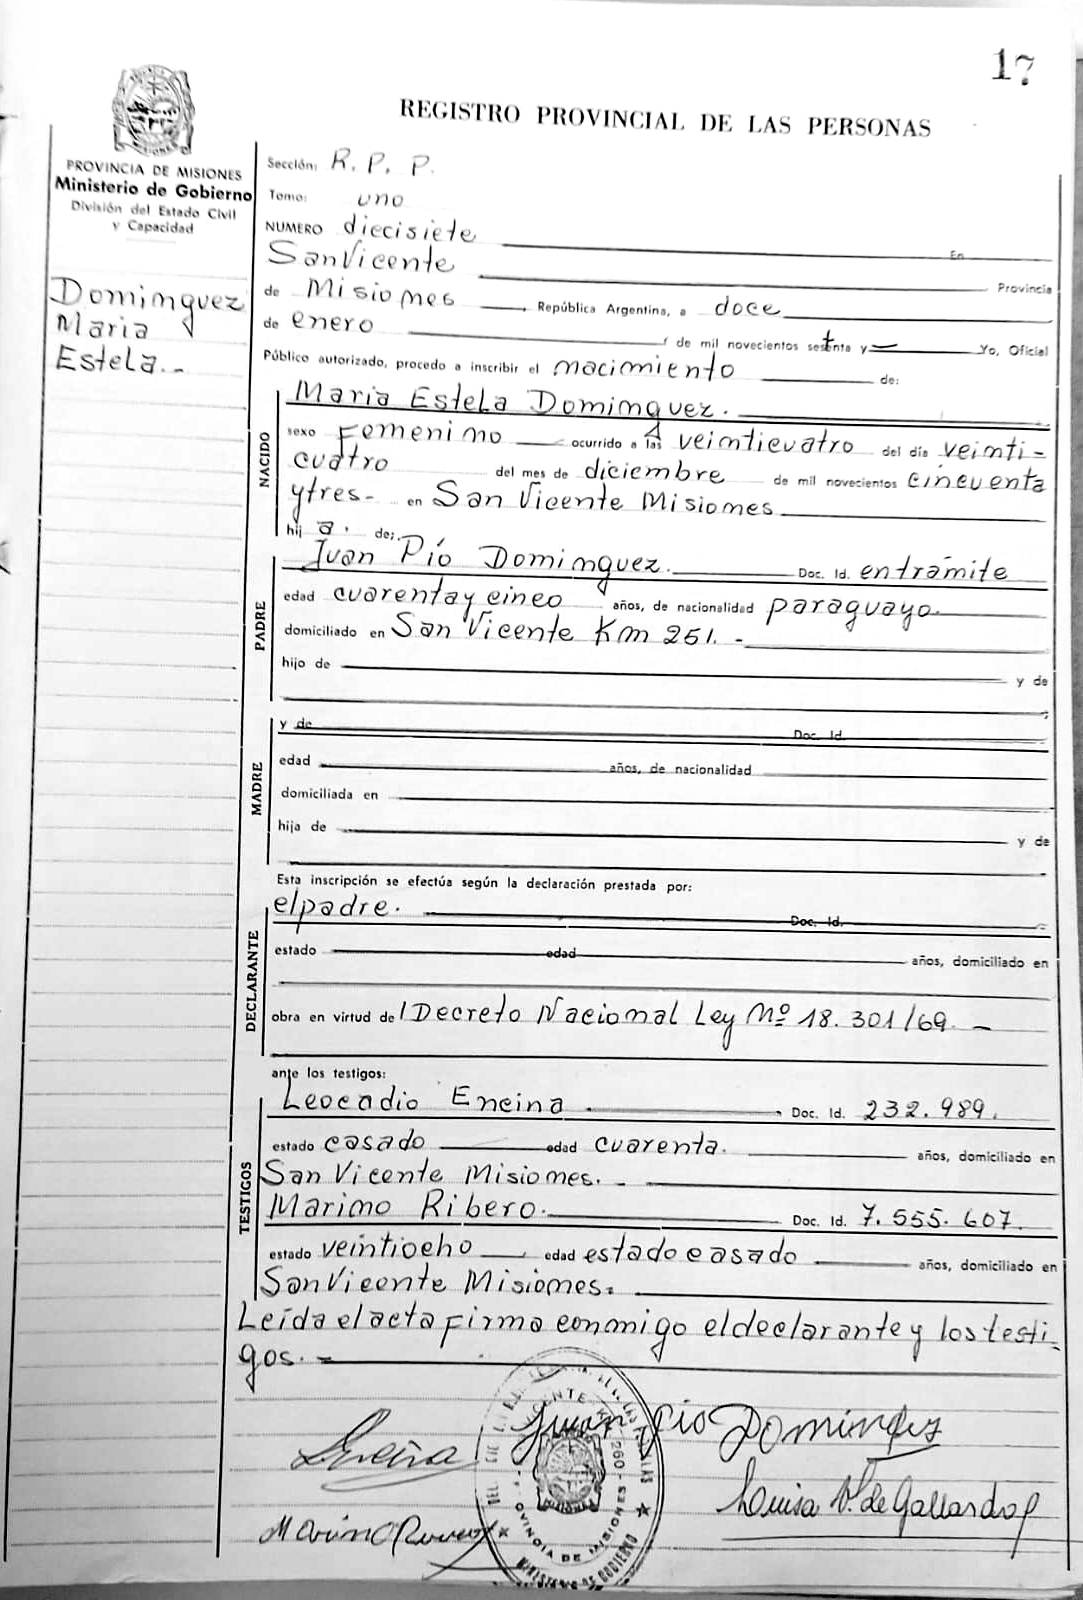 17
REGISTRO PROVINCIAL DE LAS PERSONAS
PROVINCIA DE MISIONES
Ministerio de Gobierno
División del Estado Civil
y Capacidad
Dominguez
Maria
Estela.-
Sección: R. P. P.
Tomo: uno
NUMERO diecisiete En
San Vicente Provincia
de Misiones, República Argentina, a doce
de enero de mil novecientos setenta y Yo, Oficial
Público autorizado, procedo a inscribir el nacimiento de:
NACIDO
Maria Estela Dominguez.
sexo Femenino ocurrido a las veinticuatro del día veinti-
cuatro del mes de diciembre de mil novecientos cincuenta
ytres- en San Vicente Misiones
hij a. de:
PADRE
Juan Pío Dominguez. Doc. Id. entrámite
edad cuarenta y cinco años, de nacionalidad paraguayo.
domiciliado en San Vicente Km 251. -
hijo de y de
MADRE
y de Doc. Id.
edad años, de nacionalidad
domiciliada en
hija de y de
Esta inscripción se efectúa según la declaración prestada por:
DECLARANTE
el padre. Doc. Id.
estado edad años, domiciliado en
obra en virtud de l Decreto Nacional Ley Nº 18.301/69. -
ante los testigos:
TESTIGOS
Leocadio Encina. Doc. Id. 232.989.
estado casado edad cuarenta. años, domiciliado en
San Vicente Misiones. -
Marino Ribero. Doc. Id. 7.555.607.
estado veintiocho edad estado casado años, domiciliado en
San Vicente Misiones.
Leída el acta firma conmigo el declarante y los testi-
gos. -
Juan Pío Dominguez
Encina
Luisa V. de Gallardo
Marino
VICENTE KM 260 -
PROVINCIA DE MISIONES
MINISTERIO DE GOBIERNO